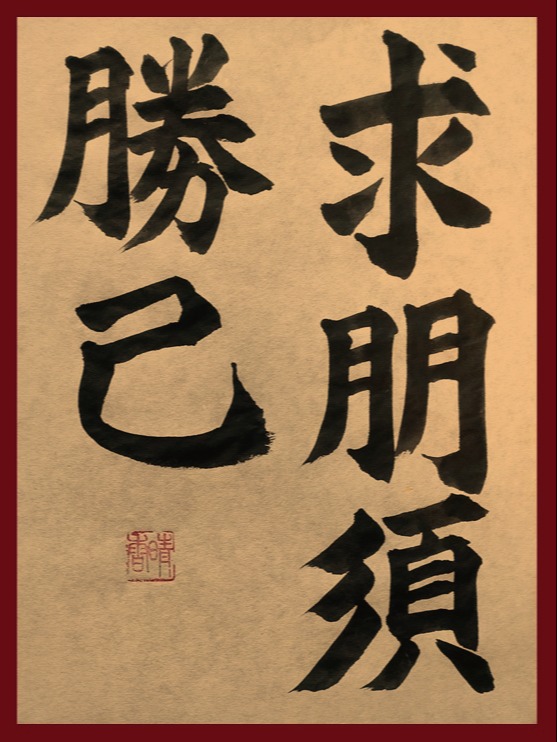 求朋須
勝己
晴唐